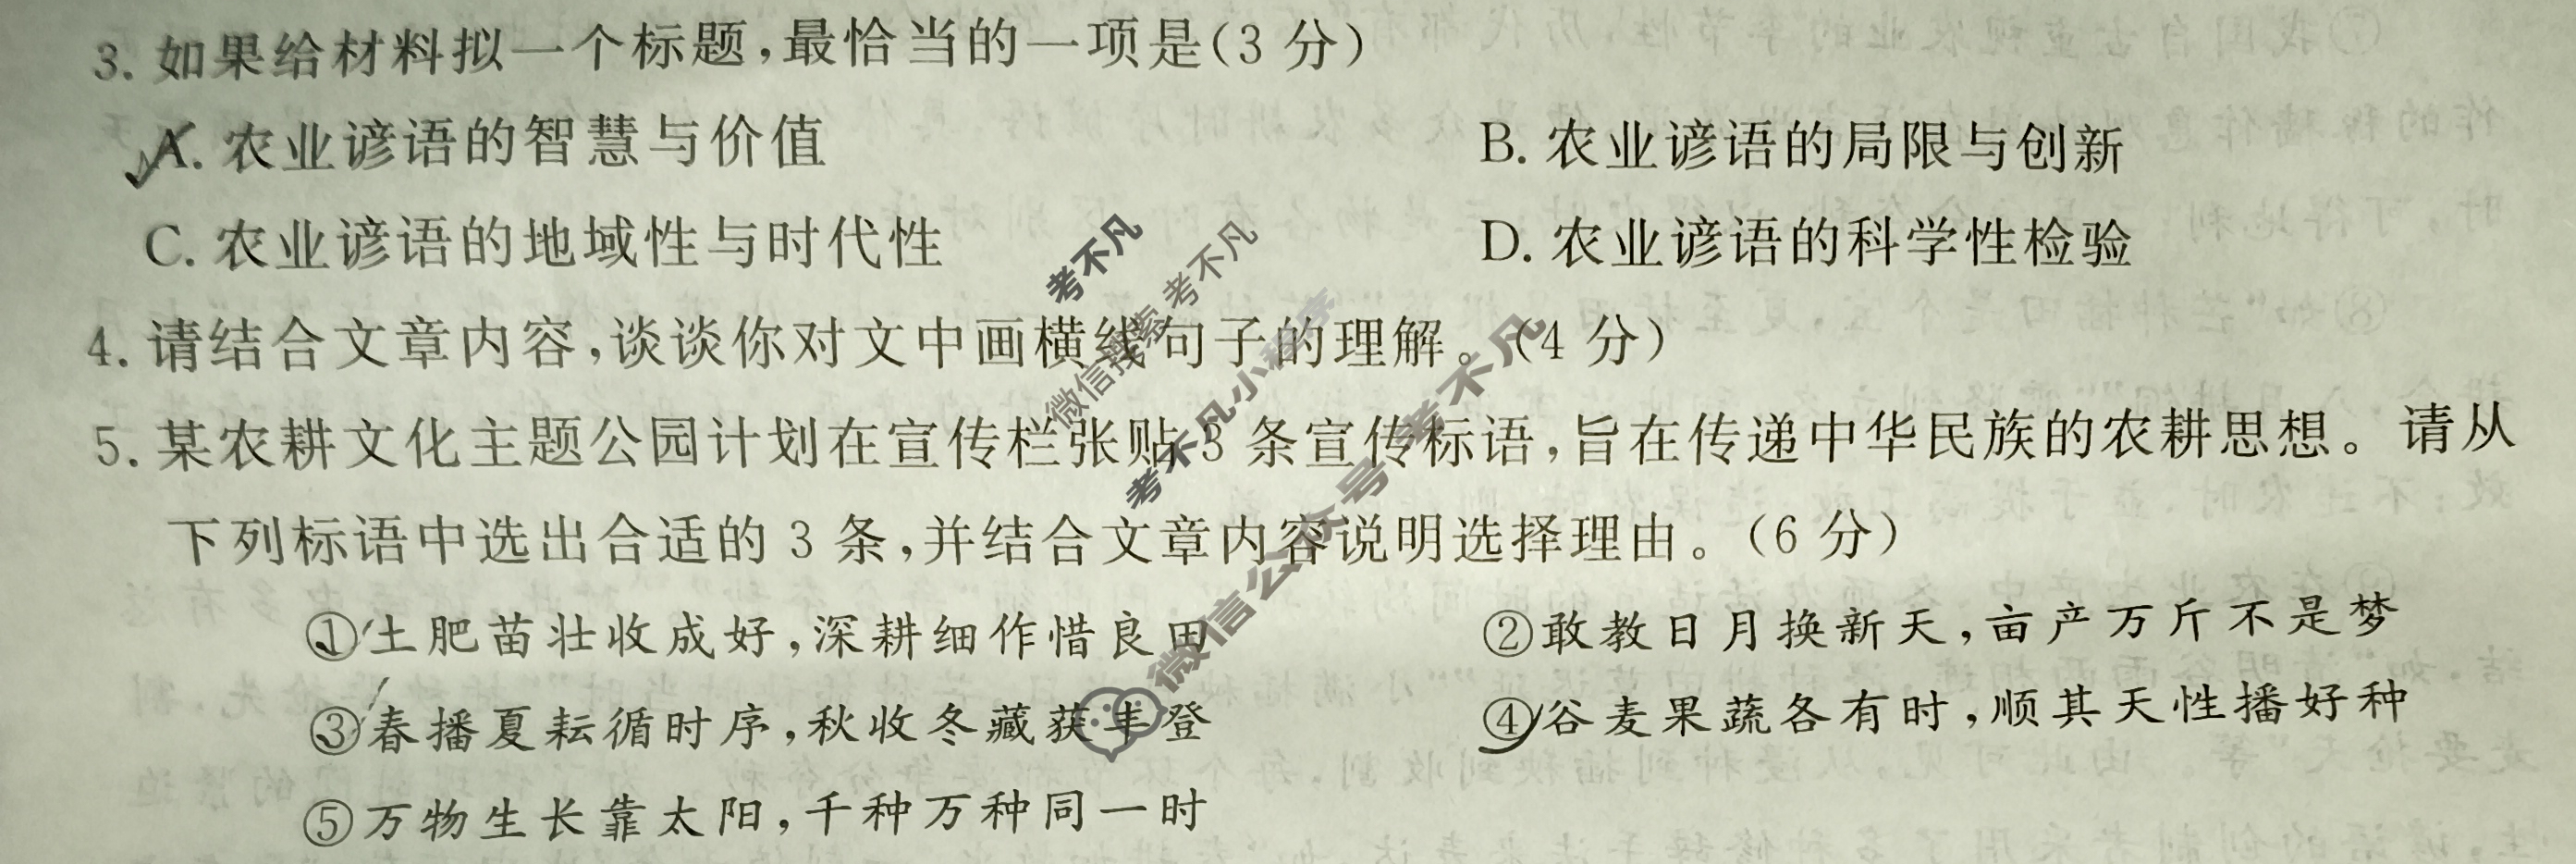 3. 如果给材料拟一个标题,最恰当的一项是(3 分)
A. 农业谚语的智慧与价值
B. 农业谚语的局限与创新
C. 农业谚语的地域性与时代性
D. 农业谚语的科学性检验
4. 请结合文章内容,谈谈你对文中画横线句子的理解。(4 分)
5. 某农耕文化主题公园计划在宣传栏张贴 3 条宣传标语,旨在传递中华民族的农耕思想。请从
下列标语中选出合适的 3 条,并结合文章内容说明选择理由。(6 分)
①土肥苗壮收成好,深耕细作惜良田
②敢教日月换新天,亩产万斤不是梦
③春播夏耘循时序,秋收冬藏获丰登
④谷麦果蔬各有时,顺其天性播好种
⑤万物生长靠太阳,千种万种同一时
考不凡
微信搜索 考不凡
考不凡小程序
微信公众号 考不凡